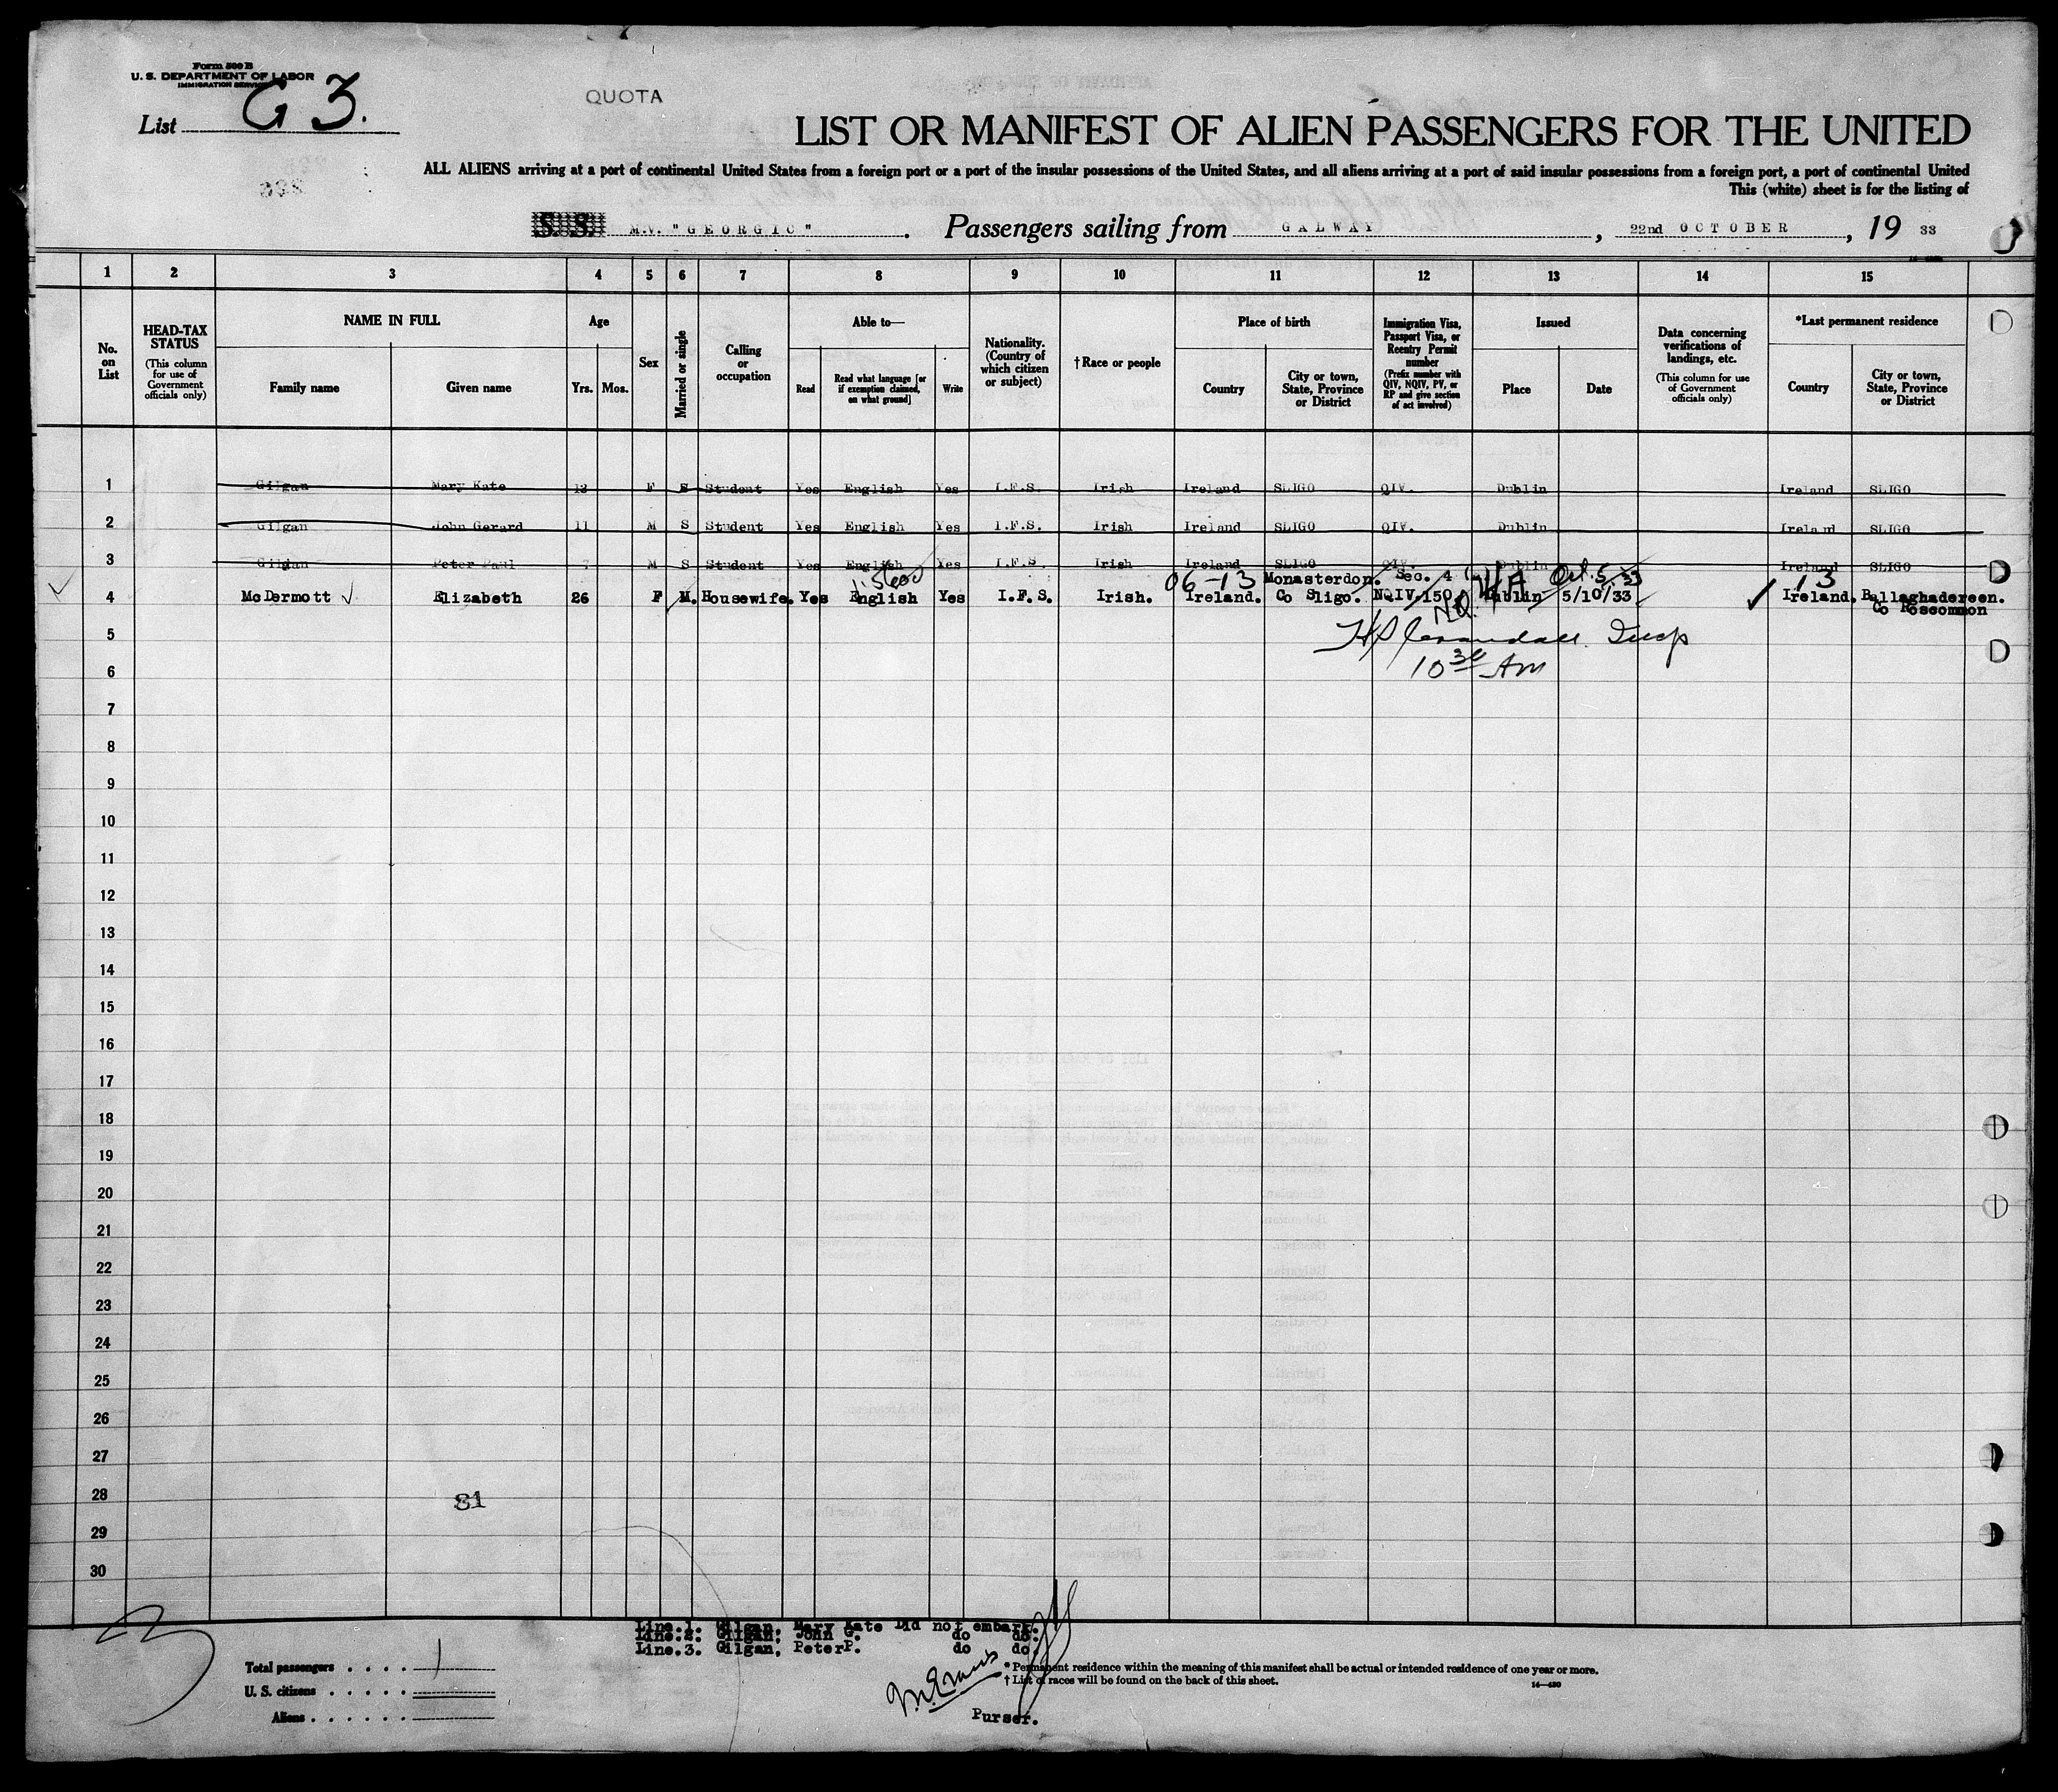 Form 500 B
U. S. DEPARTMENT OF LABOR
IMMIGRATION SERVICE
List G 3.
QUOTA
338
LIST OR MANIFEST OF ALIEN PASSENGERS FOR THE UNITED
ALL ALIENS arriving at a port of continental United States from a foreign port or a port of the insular possessions of the United States, and all aliens arriving at a port of said insular possessions from a foreign port, a port of continental United
This (white) sheet is for the listing of
S. S. M.V. "GEORGIC". Passengers sailing from GALWAY, 22nd OCTOBER, 19 33
1 2 3 4 5 6 7 8 9 10 11 12 13 14 15
No. on List
HEAD-TAX STATUS (This column for use of Government officials only)
NAME IN FULL
Family name Given name
Age
Yrs. Mos.
Sex
Married or single
Calling or occupation
Able to—
Read Read what language [or if exemption claimed, on what ground] Write
Nationality. (Country of which citizen or subject)
† Race or people
Place of birth
Country City or town, State, Province or District
Immigration Visa, Passport Visa, or Reentry Permit number (Prefix number with QIV, NQIV, PV, or RP and give section of act involved)
Issued
Place Date
Data concerning verifications of landings, etc. (This column for use of Government officials only)
*Last permanent residence
Country City or town, State, Province or District
1 Gilgan Mary Kate 13 F S Student Yes English Yes I.F.S. Irish Ireland SLIGO QIV. Dublin Ireland SLIGO
2 Gilgan John Gerard 11 M S Student Yes English Yes I.F.S. Irish Ireland SLIGO QIV. Dublin Ireland SLIGO
3 Gilgan Peter Paul M S Student Yes English Yes I.F.S. Irish Ireland SLIGO QIV. Dublin Ireland SLIGO
06-13 Monasterdon. Sec. 4 Oct. 5. 33 13
4 McDermott Elizabeth 26 F M. Housewife. Yes English Yes I.F.S. Irish. Ireland. Co Sligo. NQIV-150 Dublin 5/10/33 Ireland. Ballaghadereen.
Co Roscommon
N.Q.
5
10 30 AM
6
7
8
9
10
11
12
13
14
15
16
17
18
19
20
21
22
23
24
25
26
27
28
81
29
30
Line.1. Gilgan, Mary Kate Did not embark.
Line.2. Gilgan, John G. do do.
Line.3. Gilgan, Peter P. do do.
Total passengers . . . . 1
U. S. citizens . . . . .
Aliens . . . . . .
* Permanent residence within the meaning of this manifest shall be actual or intended residence of one year or more.
† List of races will be found on the back of this sheet.
14—430
Purser.